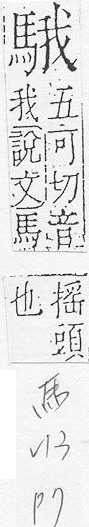 騀
五可切音
我說文馬
搖頭
也
馬
13
P7